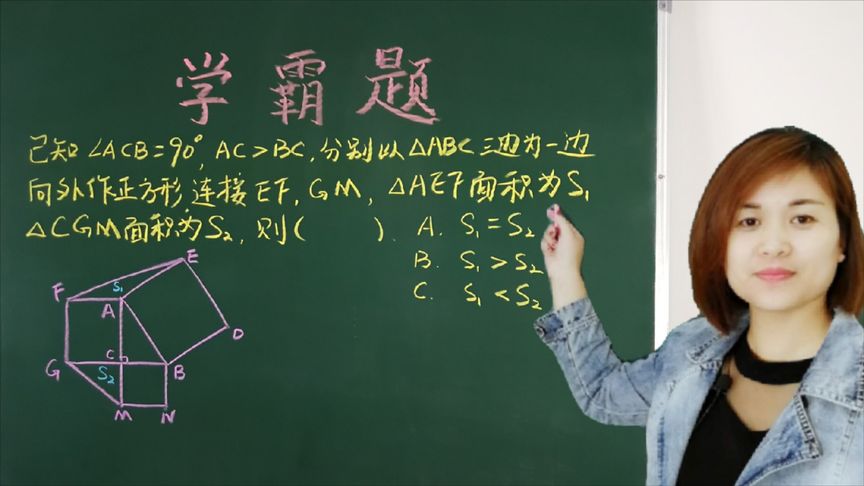 学霸题
已知∠ACB=90°,AC>BC,分别以△ABC三边为一边
向外作正方形连接EF,GM,△AEF面积为S₁
△CGM面积为S₂,则(  ).A. S₁=S₂
B. S₁>S₂
C. S₁<S₂
E
F
S₁
A
D
G
C
S₂
B
M
N